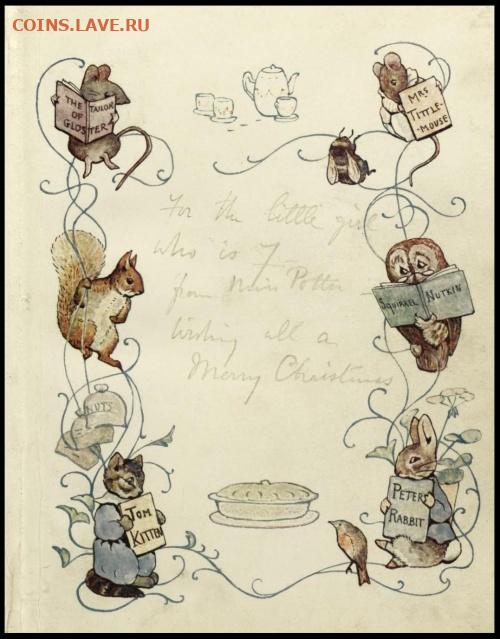 COINS.ЛАVE.RU
THE TAILOR
OF
GLOSTER
MRS
TITTLE-
MOUSE
For the little girl
who is 7
from Miss Potter
wishing all a
Merry Christmas
SQUIRREL NUTKIN
NUTS
TOM
KITTEN
PETER
RABBIT